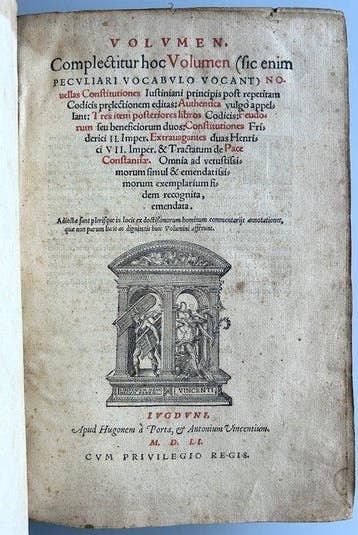 VOLVMEN.
Complectitur hoc Volumen (sic enim
PECVLIARI VOCABVLO VOCANT) NO-
uellas Constitutiones Iustiniani principis post repetitam
Codicis prælectionem editas: Authentica vulgo appel-
lant: Tres item posteriores libros Codicis: Feudo-
rum seu beneficiorum duos: Constitutiones Fri-
derici II. Imper. Extrauagantes duas Henri-
ci VII. Imper. & Tractatum de Pace
Constantiæ. Omnia ad vetustissi-
morum simul & emendatissi-
morum exemplarium fi-
dem recognita,
emendata.
Adiectæ sunt plerisque in locis ex doctissimorum hominum commentarijs annotationes,
quæ non parum lucis ac dignitatis huic Volumini afferunt.
VINCENTI
LVGDVNI,
Apud Hugonem à Porta, & Antonium Vincentium.
M. D. LI.
CVM PRIVILEGIO REGIS.